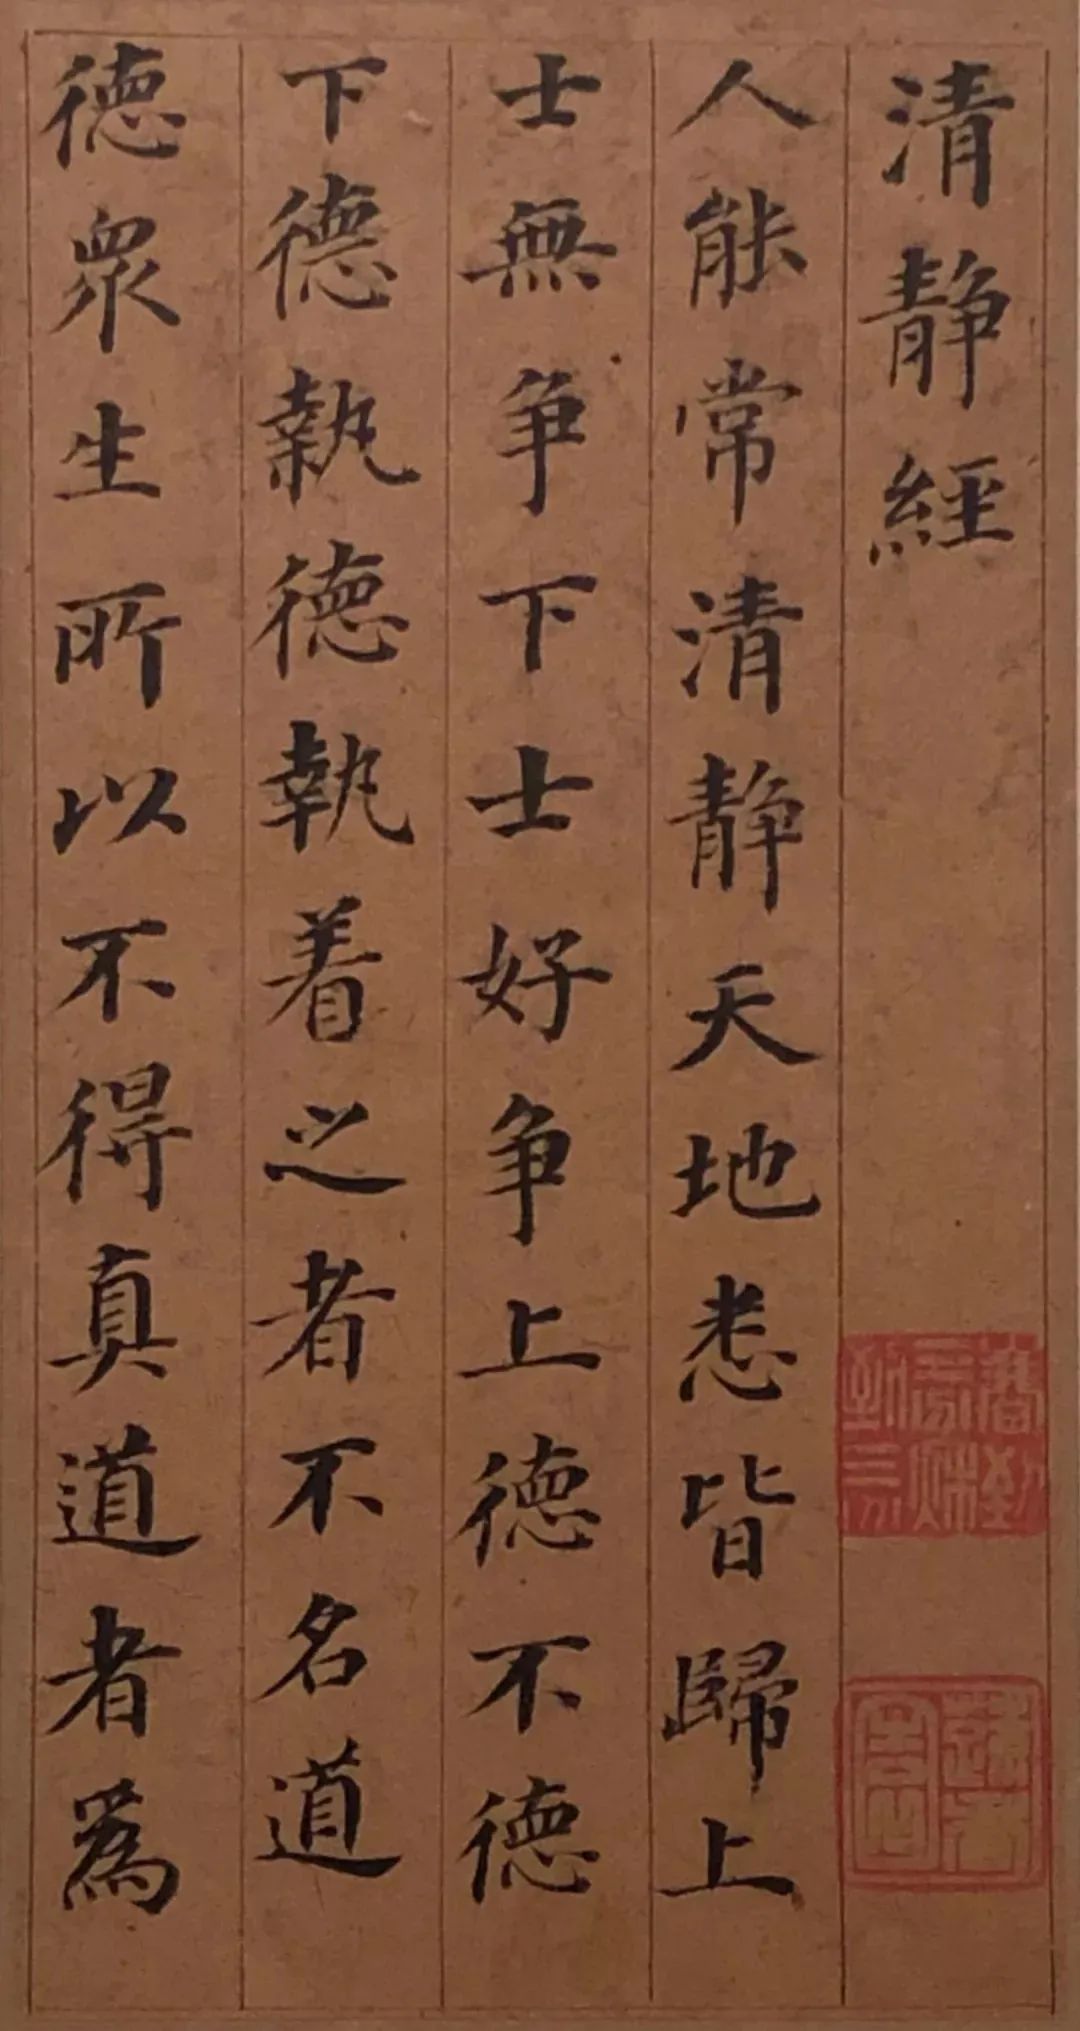 清静經
人能常清静天地悉皆歸上
士無争下士好争上德不德
下德執德執着之者不名道
德衆生所以不得真道者為